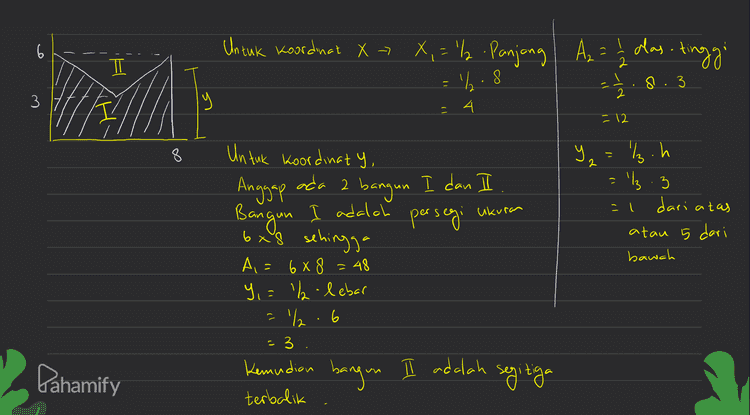 6
3
II
I
y
8
Untuk koordinat X → X₁ = 1/2 . Panjang
= 1/2 . 8
= 4
Untuk koordinat y,
Anggap ada 2 bangun I dan II.
Bangun I adalah persegi ukuran
6 x 8 sehingga
A₁ = 6 x 8 = 48
y₁ = 1/2 . lebar
= 1/2 . 6
= 3.
Kemudian bangun II adalah segitiga
terbalik.
A₂ = 1/2 alas . tinggi
= 1/2 . 8 . 3
= 12
y₂ = 1/3 . h
= 1/3 . 3
= 1 dari atas
atau 5 dari
bawah
Pahamify